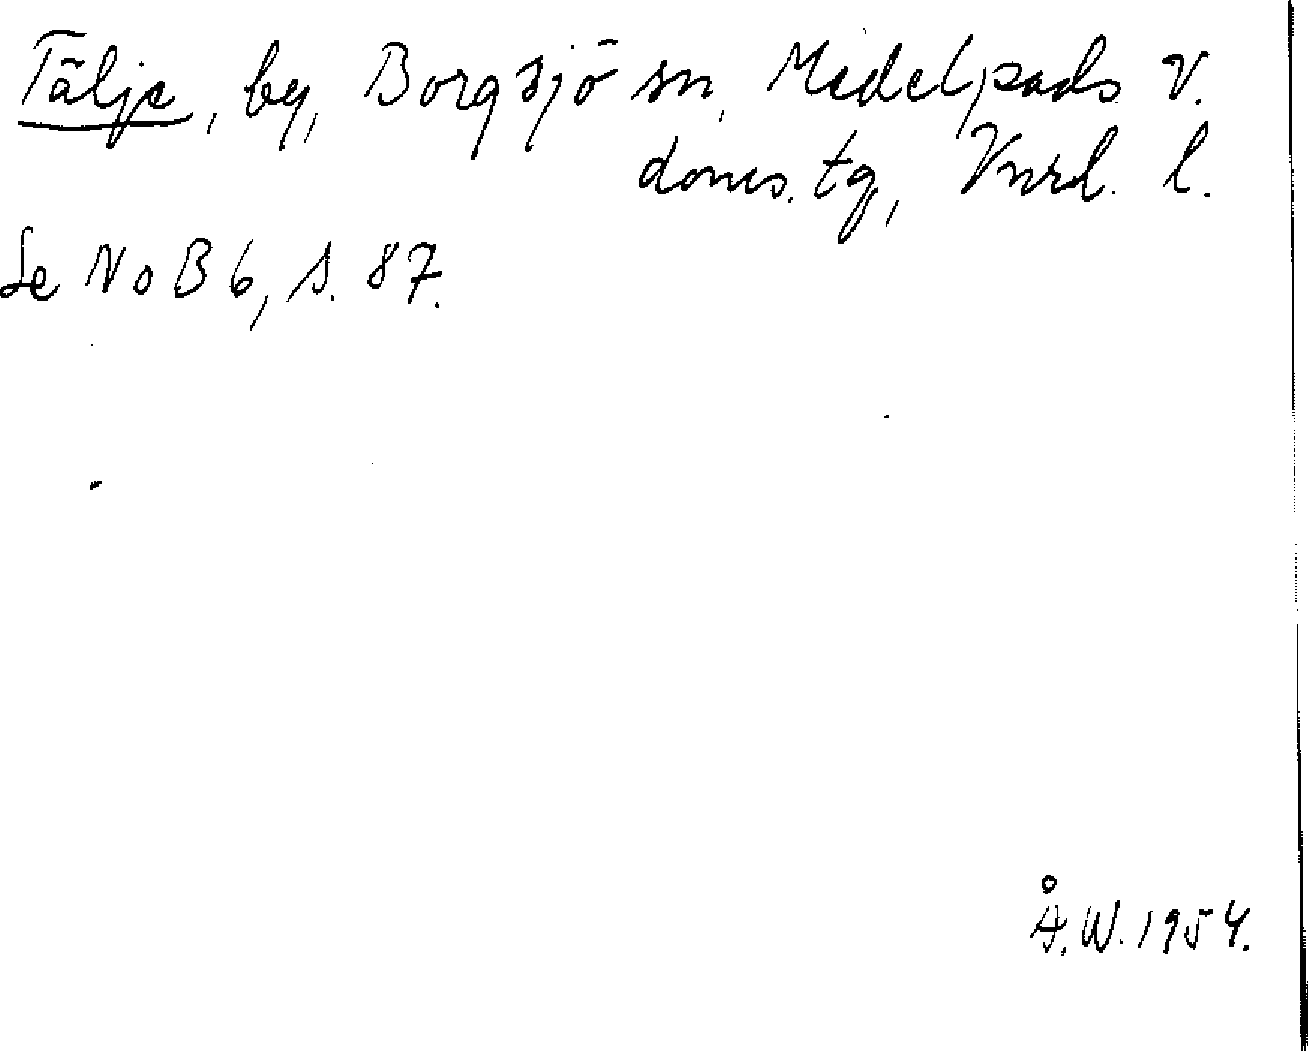 Tälje, by, Borgsjö sn, Medelpads v.
doms. tg, Vnrl. l.
Se NoB 6, s. 87.
Å.W. 1954.